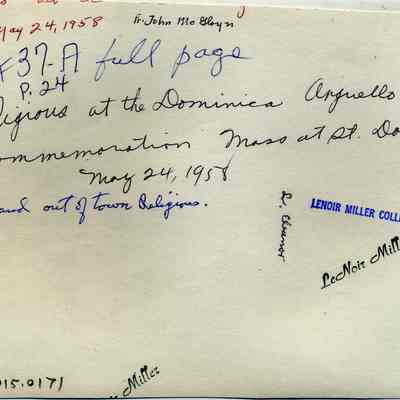 May 24, 1958
Fr. John McGloyn
37-A full page
P. 24
ligious at the Dominica Arguello
ommemoration Mass at St. Do
May 24, 1958
and out of town Religious.
LENOIR MILLER COLL
LeNoir Mill
015.0171
Miller